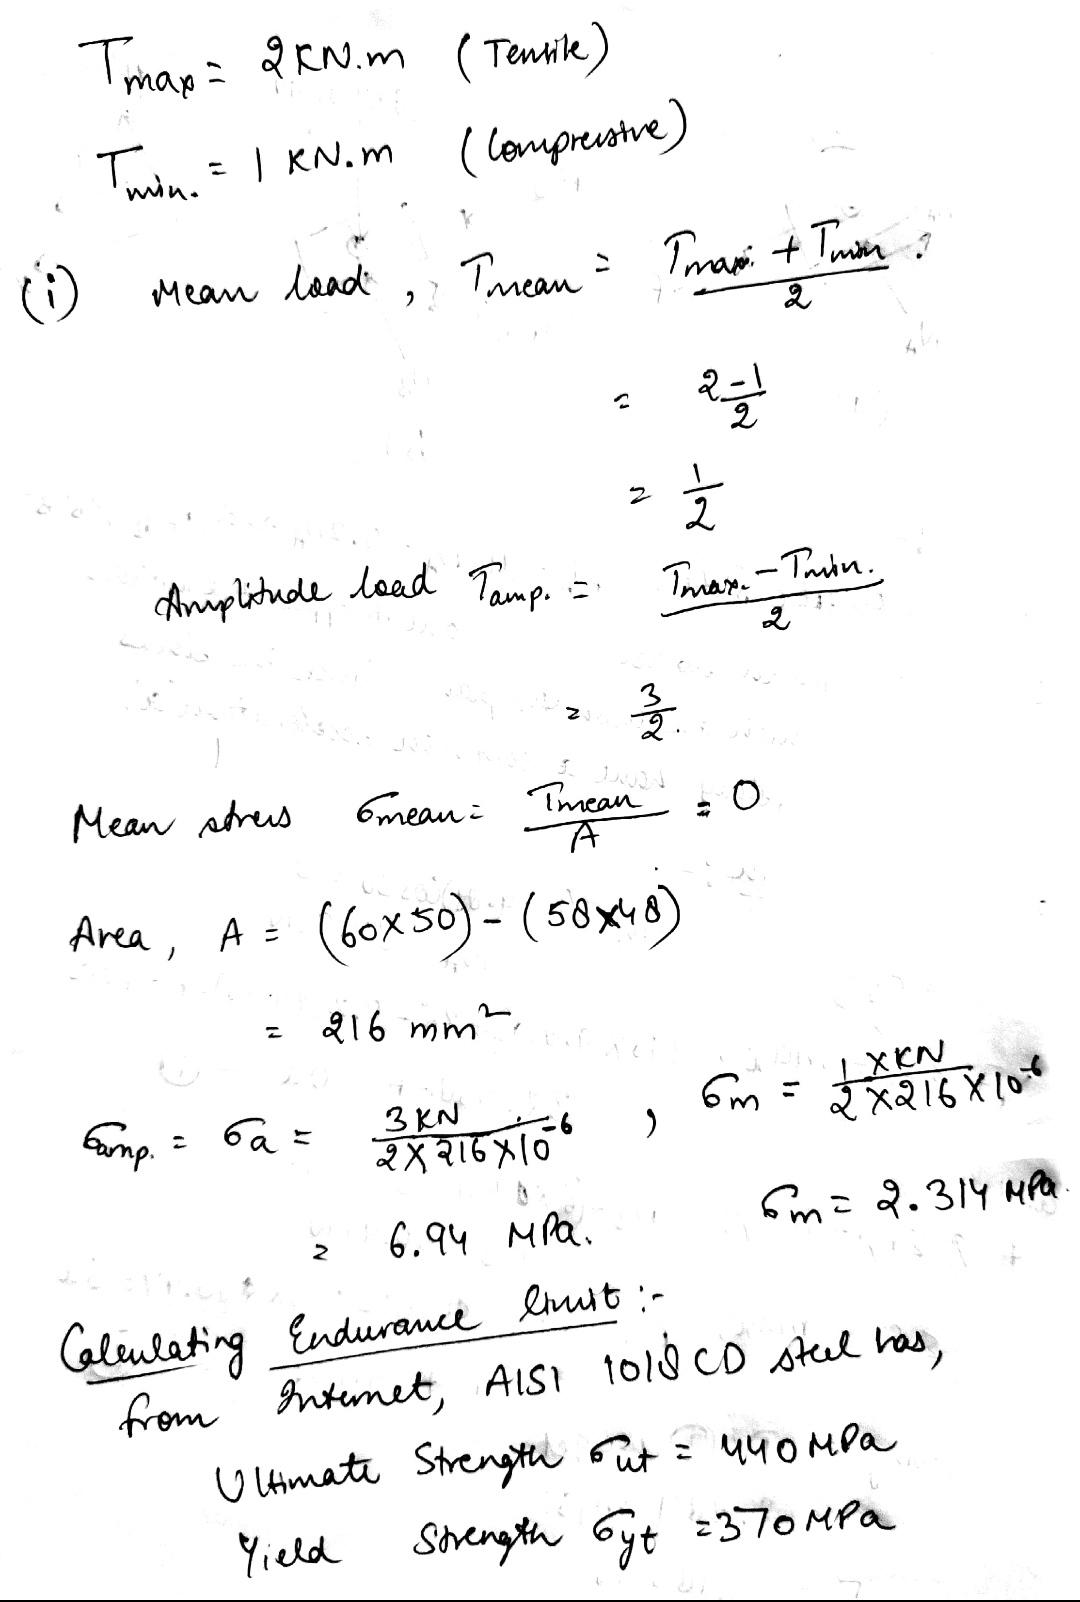 Tmax = 2 KN.m (Tensile)
Tmin. = 1 KN.m (Compressive)
(i) Mean load, Tmean = Tmax. + Tmin. / 2
= 2-1 / 2
= 1/2
Amplitude load Tamp. = Tmax. - Tmin. / 2
= 3/2.
Mean stress σmean = Tmean / A = 0
Area, A = (60×50) - (58×48)
= 216 mm²
σamp. = σa = 3 KN / 2×216×10^-6 , σm = 1×KN / 2×216×10^-6
= 6.94 MPa. σm = 2.314 MPa.
Calculating Endurance limit :-
from Internet, AISI 1018 CD steel has,
Ultimate Strength σut = 440 MPa
Yield Strength σyt = 370 MPa